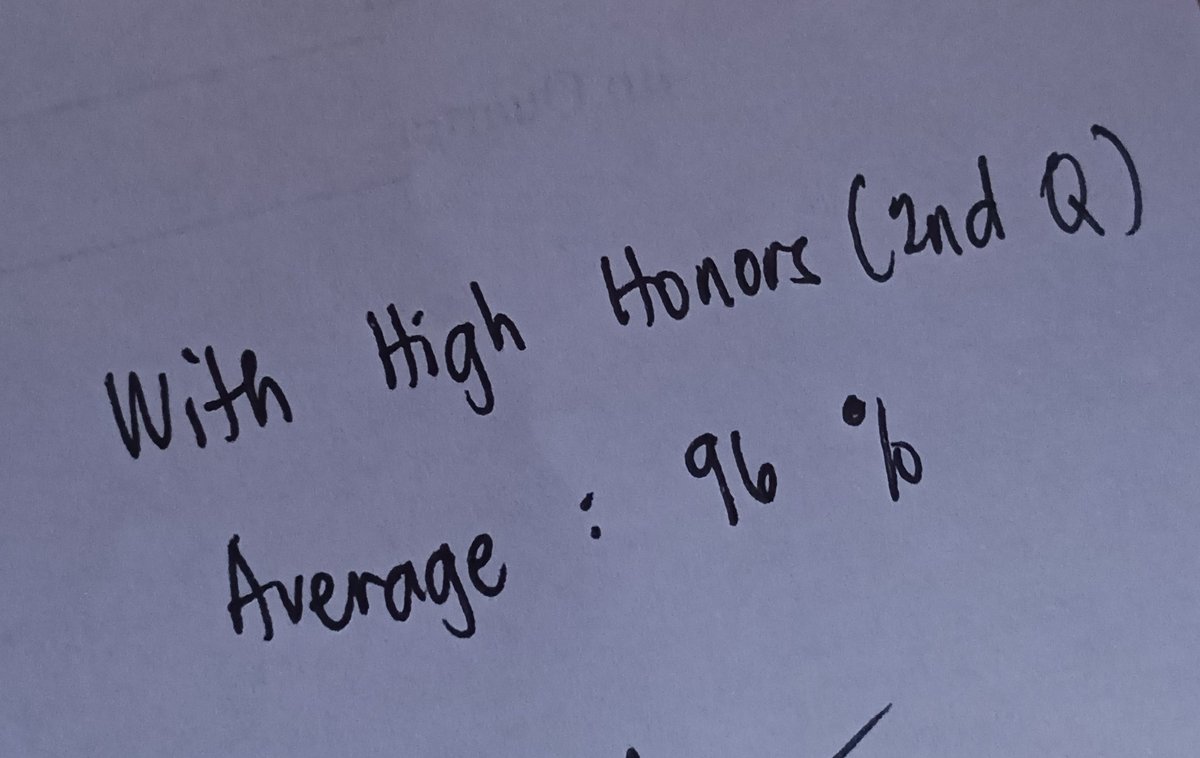 With High Honors (2nd Q)
Average : 96 %